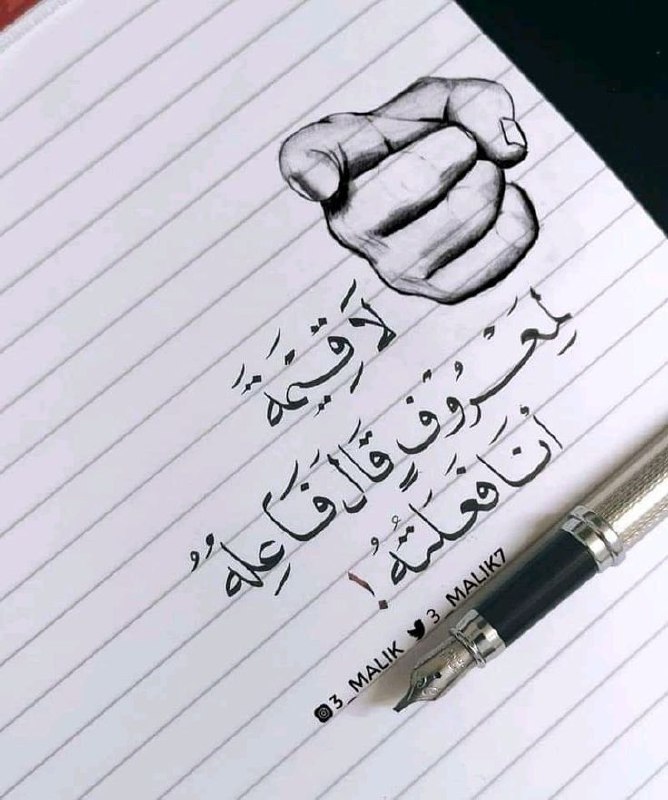 لَا قِيْمَةَ
لِمَعْرُوْفٍ قَالَ فَاعِلُهُ
أَنَا فَعَلْتُهُ !
3_MALIK 3_MALIK7